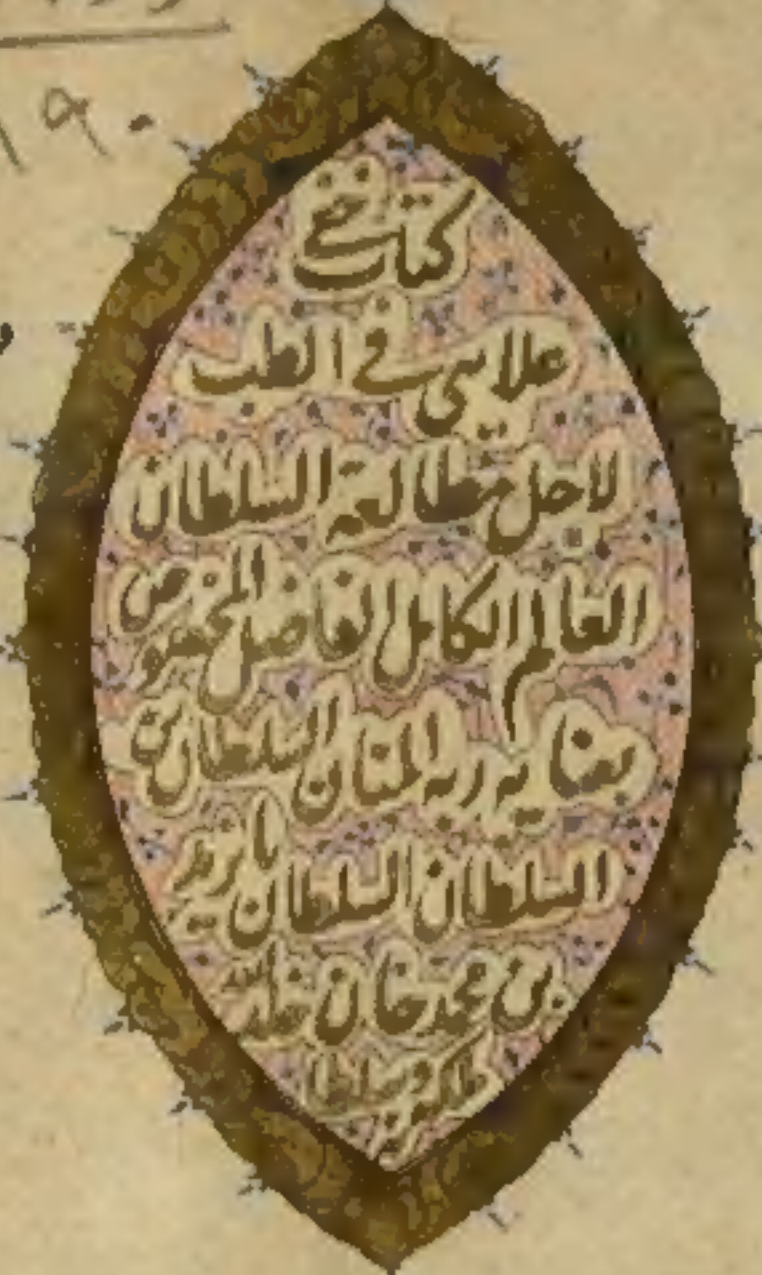 ١٩٠
كتاب خفى
علايى فى الطب
لاجل مطالعة السلطان
العالم الكامل الفاضل المخصوص
بعناية ربه المنان السلطان بن
السلطان السلطان بايزيد
بن محمد خان خلد الله
ملكه وسلطانه